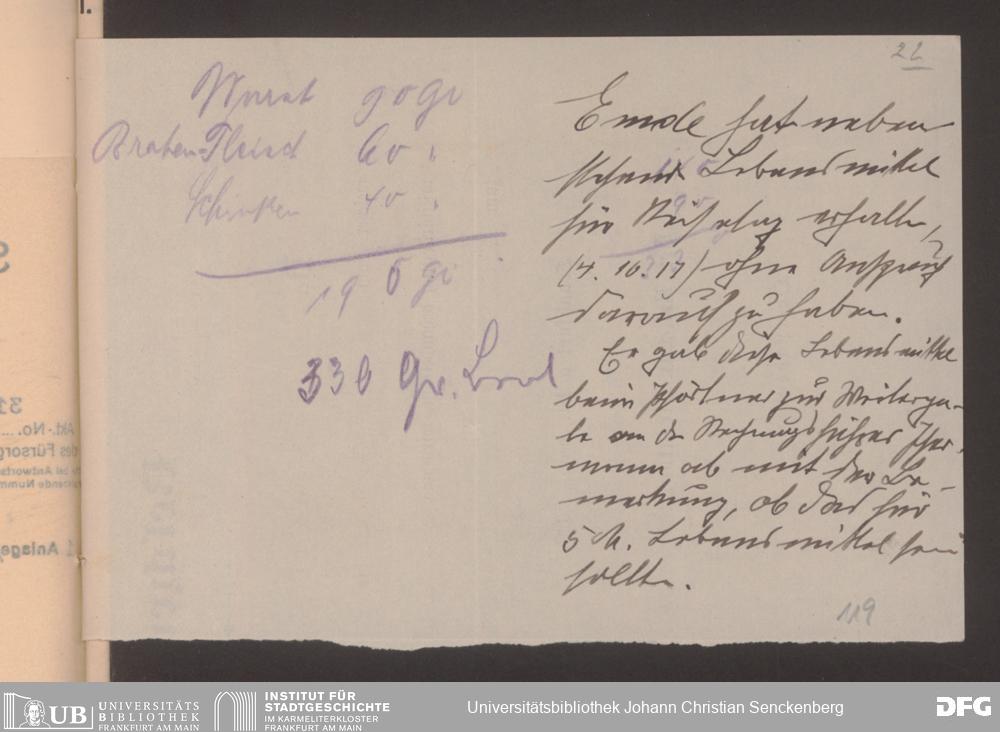 22
Wurst 90 gr
Braten-Fleisch 60 "
Schinken 40 "
190 gr
330 Gr. Brot
Emde hat neben
stehende Lebensmittel
für Reisetag erhalten,
(4. 10. 17) ohne Anspruch
darauf zu haben.
Er gab diese Lebensmittel
beim Pförtner zur Weiterga-
be an den Rechnungsführer
ab mit der Be-
merkung, ob das für
5 M. Lebensmittel sein
sollte.
119
UB UNIVERSITÄTS
BIBLIOTHEK
FRANKFURT AM MAIN
INSTITUT FÜR
STADTGESCHICHTE
IM KARMELITERKLOSTER
FRANKFURT AM MAIN
Universitätsbibliothek Johann Christian Senckenberg
DFG